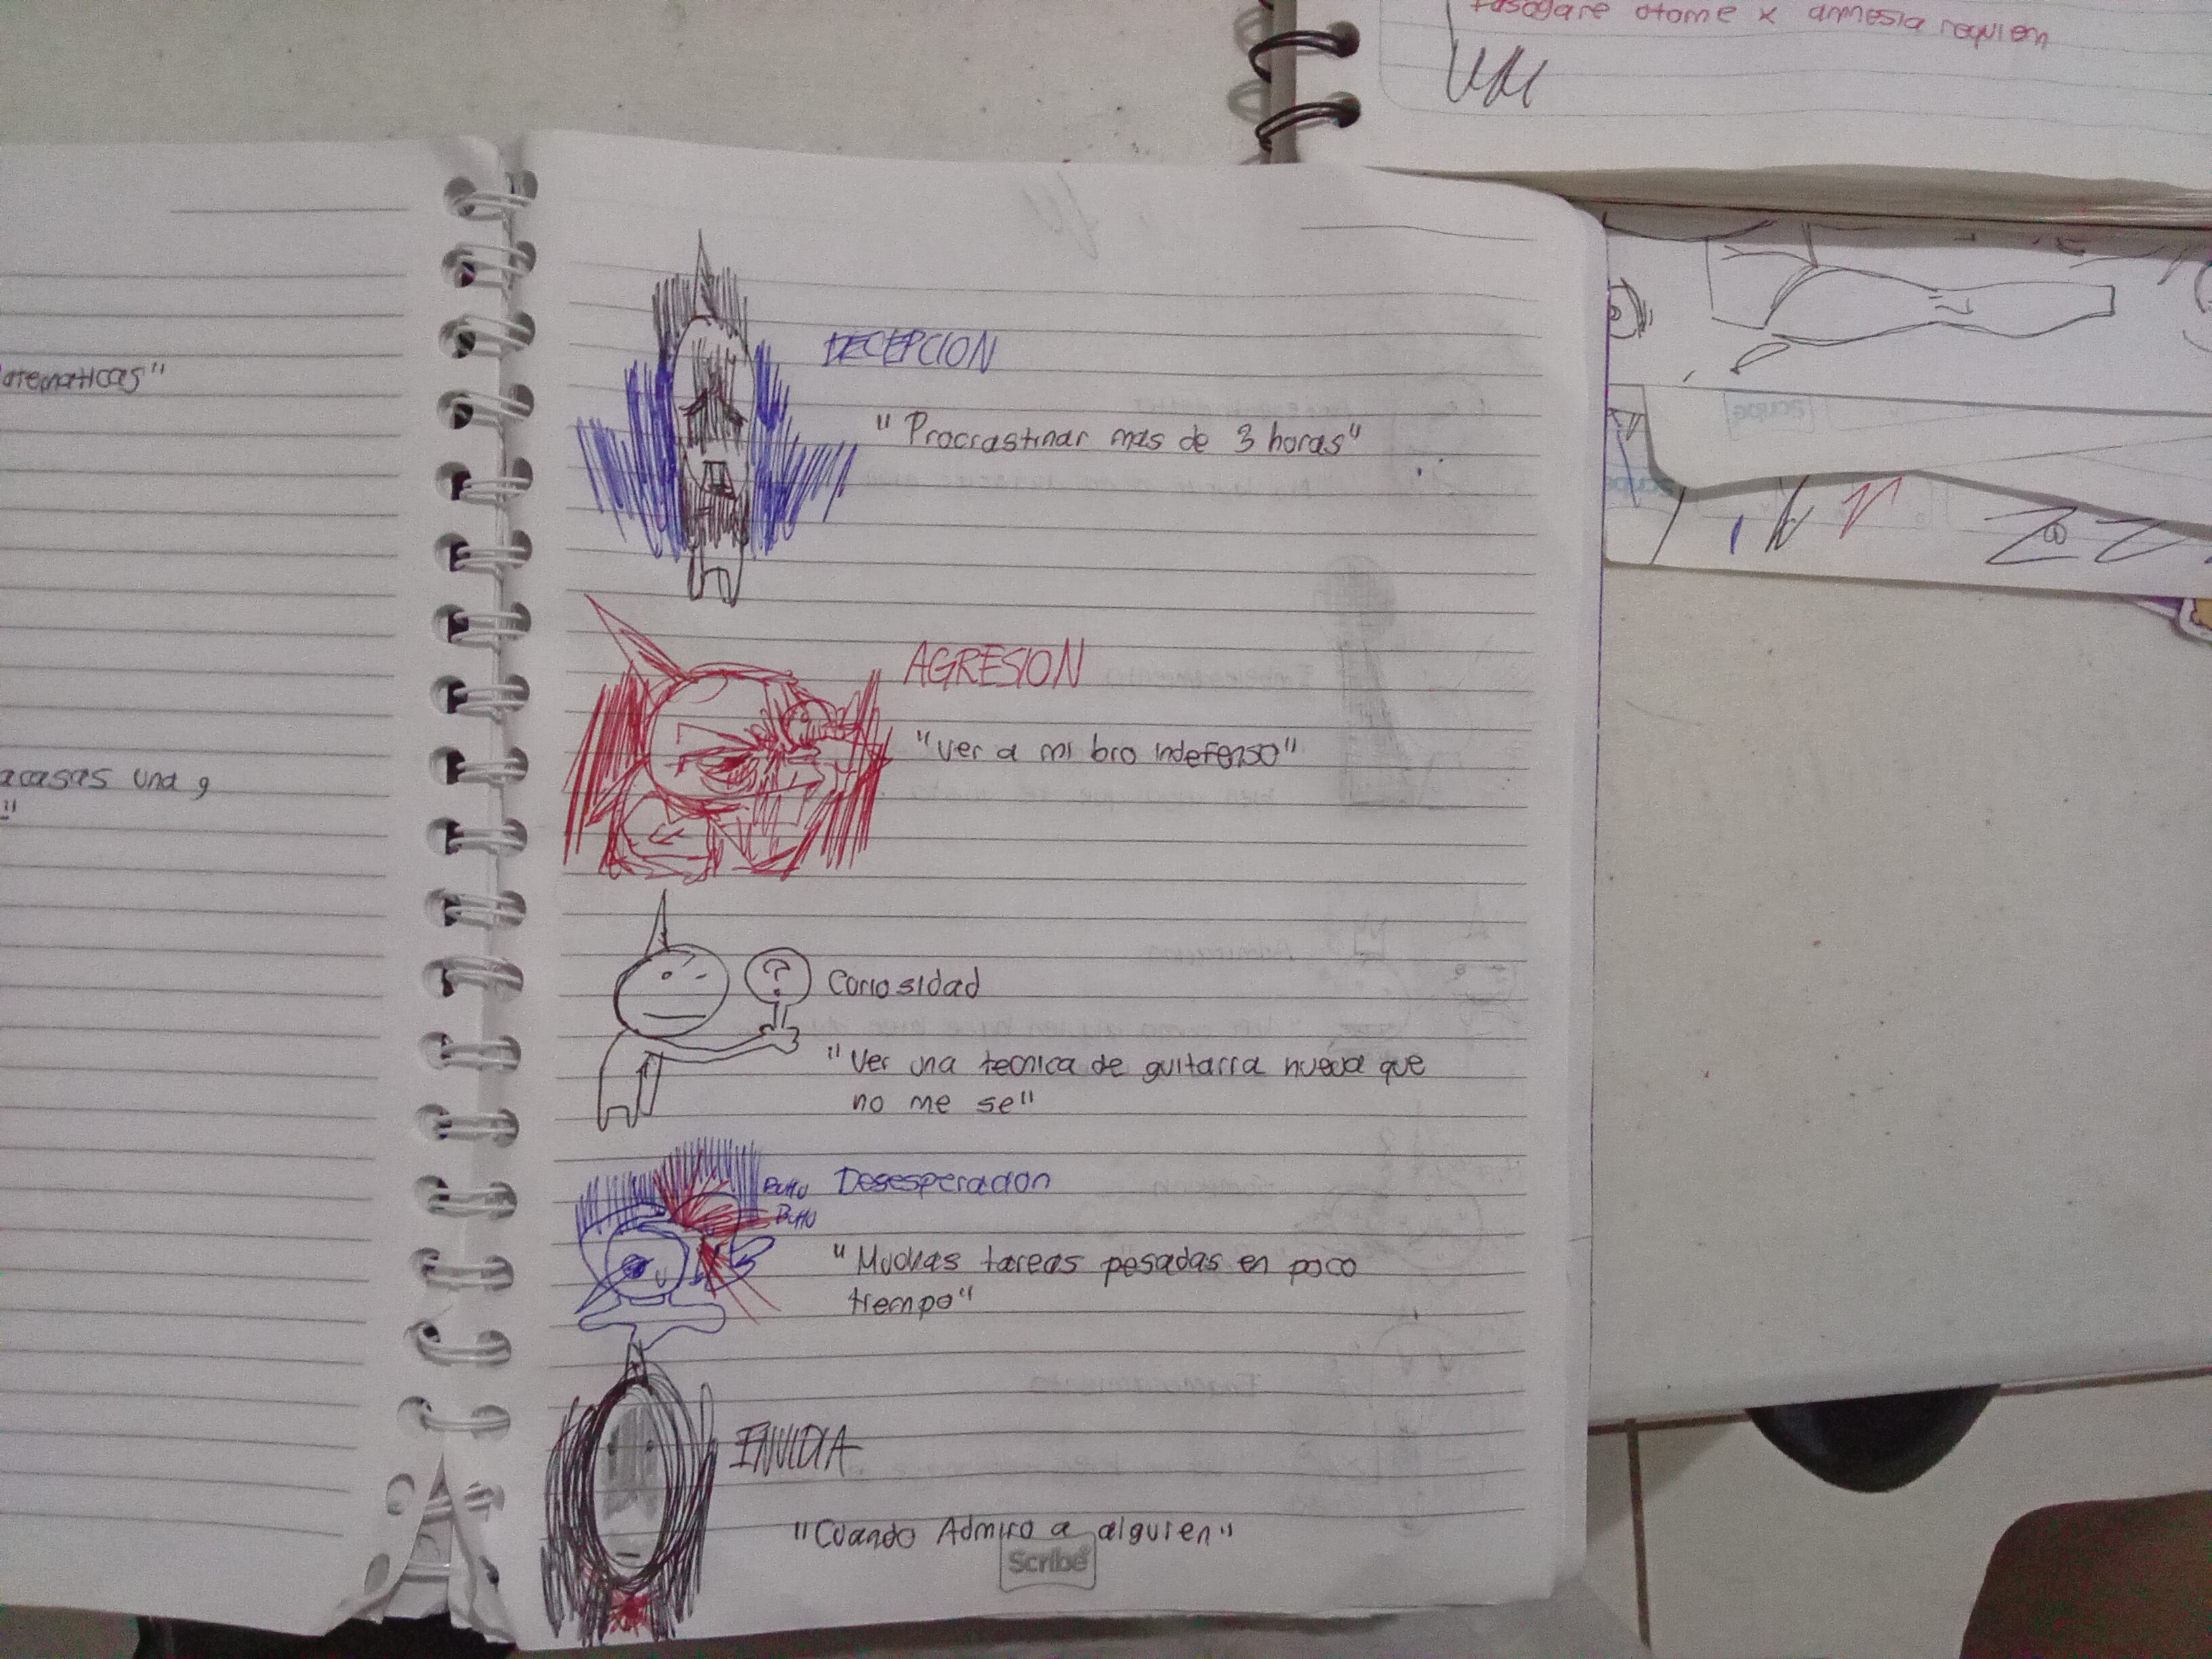 tasogare otome x amnesia requiem
atematicas"
acasas una g
"
DECEPCION
"Procrastinar mas de 3 horas"
AGRESION
"ver a mi bro indefenso"
?
Curiosidad
"Ver una tecnica de guitarra nueva que
no me se"
Desesperacion
"Muchas tareas pesadas en poco
tiempo"
ENVIDIA
"Cuando Admiro a alguien"
Scribe